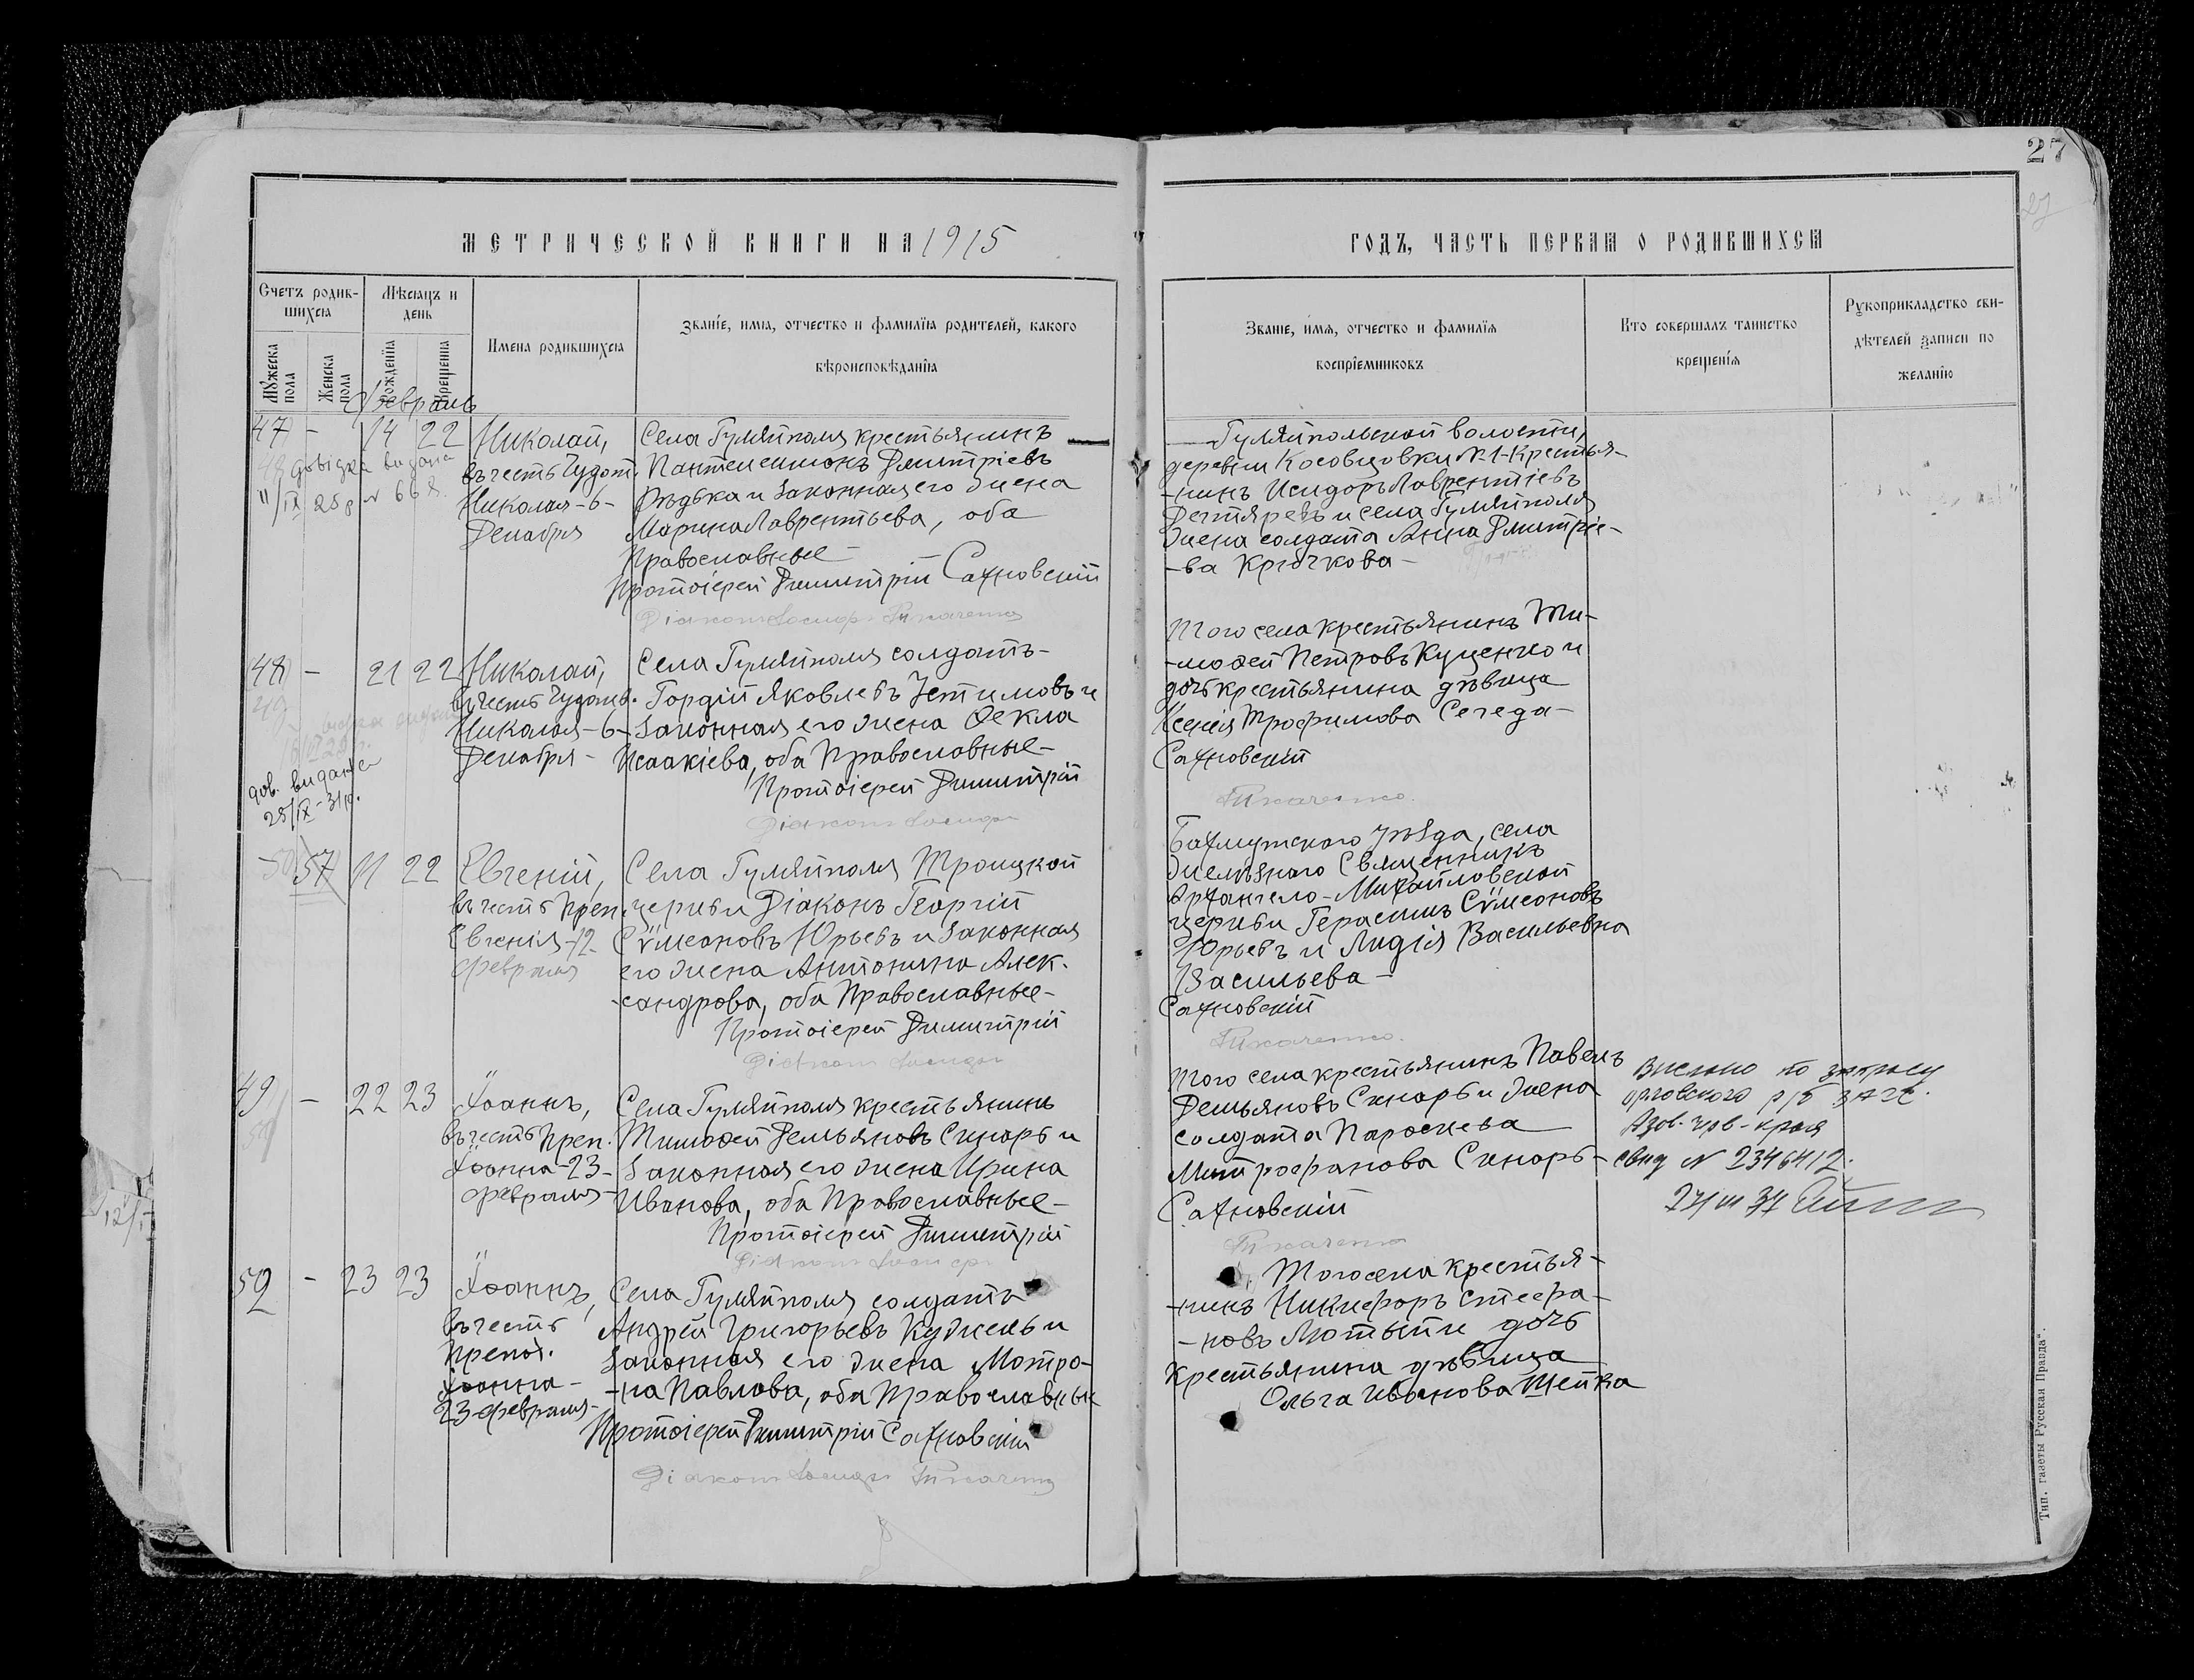 27
27
МЕТРИЧЕСКОЙ КНИГИ НА 1915
ГОДЪ, ЧАСТЬ ПЕРВАЯ О РОДИВШИХСЯ
Счетъ родив-
шихся
Мѣсяцъ и
день
Имена родившихся
Званіе, имя, отчество и фамилія родителей, какого
вѣроисповѣданія
Мужеска
пола
Женска
пола
Рожденія
Крещенія
Званіе, имя, отчество и фамилія
воспріемниковъ
Кто совершалъ таинство
крещенія
Рукоприкладство сви-
дѣтелей записи по
желанію
Февраль
47 - 14 22 Николай,
въ честь Чудот.
Николая-6-
Декабря
довідка видана
"/IX 25р N 668.
Села Гуляйполя крестьянинъ
Пантелеимонъ Дмитріевъ
Рѣдька и законная его жена
Марина Лаврентьева, оба
Православные-
Протоіерей Димитрій Сахновскій
Діаконъ Ткаченко
Гуляйпольской волости,
деревни Косовцовки №1-Крестья-
-нинъ Исидоръ Лаврентіевъ
Дегтяревъ и села Гуляйполя
жена солдата Анна Дмитріе-
-ва Крючкова-
48 - 21 22 Николай,
въ честь Чудотв.
Николая-6-
Декабря-
дов. видана
25/IX-31р.
Села Гуляйполя солдатъ-
Гордій Яковлевъ Устимовъ и
законная его жена Ѳекла
Исаакіева, оба Православные-
Протоіерей Димитрій
Діаконъ
Того села крестьянинъ Ти-
-моѳей Петровъ Куценко и
дочь крестьянина дѣвица
Ксенія Трофимова Сегеда-
Сахновскій
Ткаченко.
57 11 22 Евгеній,
въ честь Преп.
Евгенія-12-
февраля
Села Гуляйполя Троицкой
церкви Діаконъ Георгій
Сѵмеоновъ Юрьевъ и законная
его жена Антонина Алек-
-сандрова, оба Православные-
Протоіерей Димитрій
Діаконъ
Бахмутского уѣзда, села
Желѣзного Священникъ
Архангело-Михайловской
церкви Герасимъ Сѵмеоновъ
Юрьевъ и Лидія Васильевна
Васильева-
Сахновскій
Ткаченко.
49 - 22 23 Іоаннъ,
въ честь Преп.
Іоанна-23-
февраля-
Села Гуляйполя крестьянинъ
Тимоѳей Демьяновъ Скнарь и
законная его жена Ирина
Иванова, оба Православные-
Протоіерей Димитрій
Діаконъ
Того села крестьянинъ Павелъ
Демьяновъ Скнарь и жена
солдата Параскева
Митрофанова Скнарь-
Сахновскій
Ткаченко
по запросу
р/б ЗАГС.
Азов. чрв-края
свид N 2346412.
52 - 23 23 Іоаннъ,
въ честь
Препод.
Іоанна-
23-февраля-
Села Гуляйполя солдатъ
Андрей Григорьевъ Куджель и
законная его жена Мотро-
-на Павлова, оба Православные
Протоіерей Димитрій Сахновскій
Діаконъ Ткаченко
Того села крестья-
-нинъ Никифоръ Стефа-
-новъ Мотыги дочь
крестьянина дѣвица
Ольга Иванова Щепка
Тип. газеты „Русская Правда“.